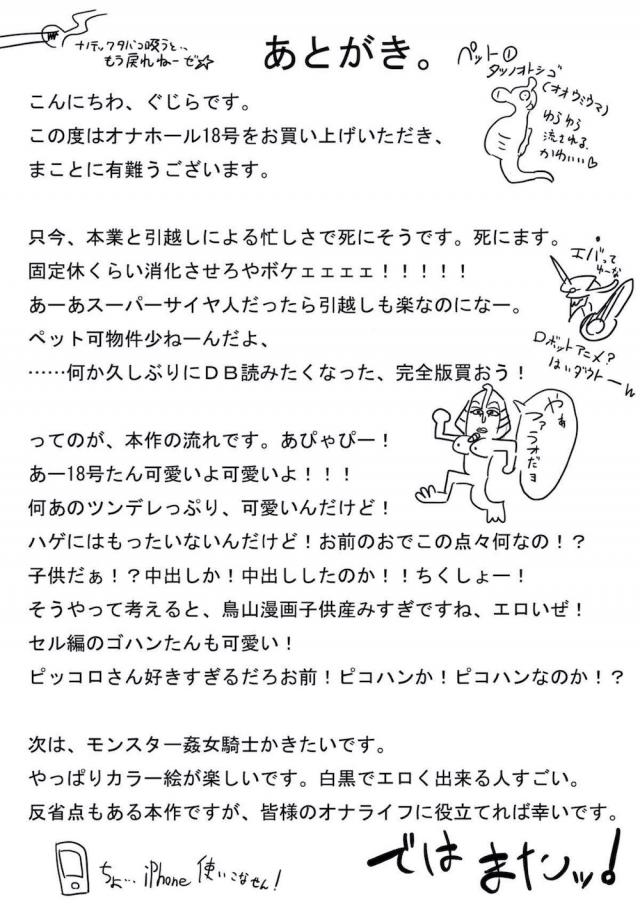 ナノテックタバコ吸うと…
もう戻れねーぜ☆
あとがき。
ペット①
タツノオトシゴ
(オオウミウマ)
ゆらゆら
流される
かわいい♡
こんにちわ、ぐじらです。
この度はオナホール18号をお買い上げいただき、
まことに有難うございます。
只今、本業と引越しによる忙しさで死にそうです。死にます。
固定休くらい消化させろやボケェェェェ!!!!!
あーあスーパーサイヤ人だったら引越しも楽なのになー。
ペット可物件少ねーんだよ、
……何か久しぶりにDB読みたくなった、完全版買おう!
エバって
ゆーな
ロボットアニメ?
はいダウトーん
ってのが、本作の流れです。あぴゃぴー!
あー18号たん可愛いよ可愛いよ!!!
何あのツンデレっぷり、可愛いんだけど!
ハゲにはもったいないんだけど!お前のおでこの点々何なの!?
子供だぁ!?中出しか!中出ししたのか!!ちくしょー!
そうやって考えると、鳥山漫画子供産みすぎですね、エロいぜ!
セル編のゴハンたんも可愛い!
ピッコロさん好きすぎるだろお前!ピコハンか!ピコハンなのか!?
やぁ
ファ
ラオだョ
次は、モンスター姦女騎士かきたいです。
やっぱりカラー絵が楽しいです。白黒でエロく出来る人すごい。
反省点もある本作ですが、皆様のオナライフに役立てれば幸いです。
ちょ…iPhone使いこなせん!
では またッ!